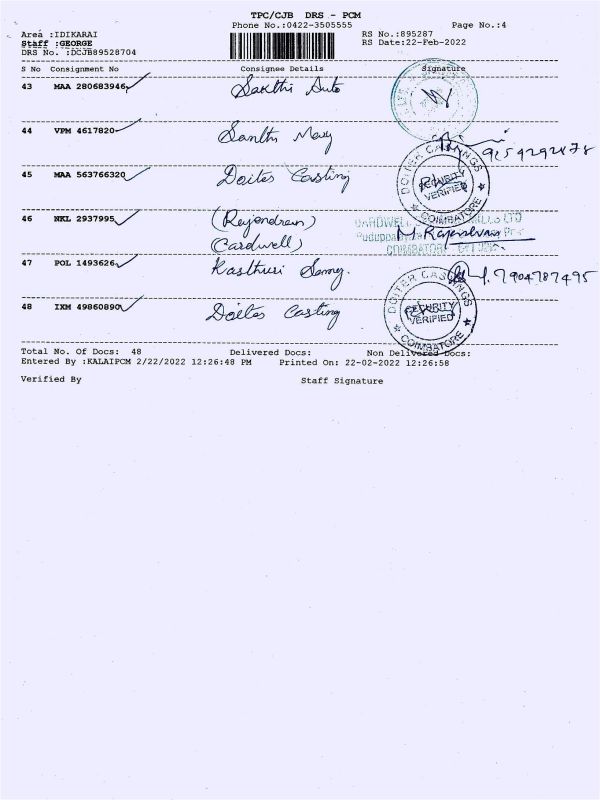 TPC/CJB DRS - PCM
Phone No.:0422-3505555 Page No.:4
Area :IDIKARAI RS No.:895287
Staff :GEORGE RS Date:22-Feb-2022
DRS No. :DCJB89528704
S No Consignment No Consignee Details Signature
43 MAA 280683946 Sakthi Auto
44 VPM 4617820 Santhi Mary
9159292878
45 MAA 563766320 Doites Casting
DOITER CASTINGS
SECURITY
VERIFIED
COIMBATORE
46 NKL 2937995 (Rajendran)
(Cardwell)
CARDWELL MILLS LTD
M. Rajendran
COIMBATORE
47 POL 1493626 Kasthuri Samy.
7904787495
48 IXM 49860890 Doites Casting
DOITER CASTINGS
SECURITY
VERIFIED
COIMBATORE
Total No. Of Docs: 48 Delivered Docs: Non Delivered Docs:
Entered By :KALAIPCM 2/22/2022 12:26:48 PM Printed On: 22-02-2022 12:26:58
Verified By Staff Signature